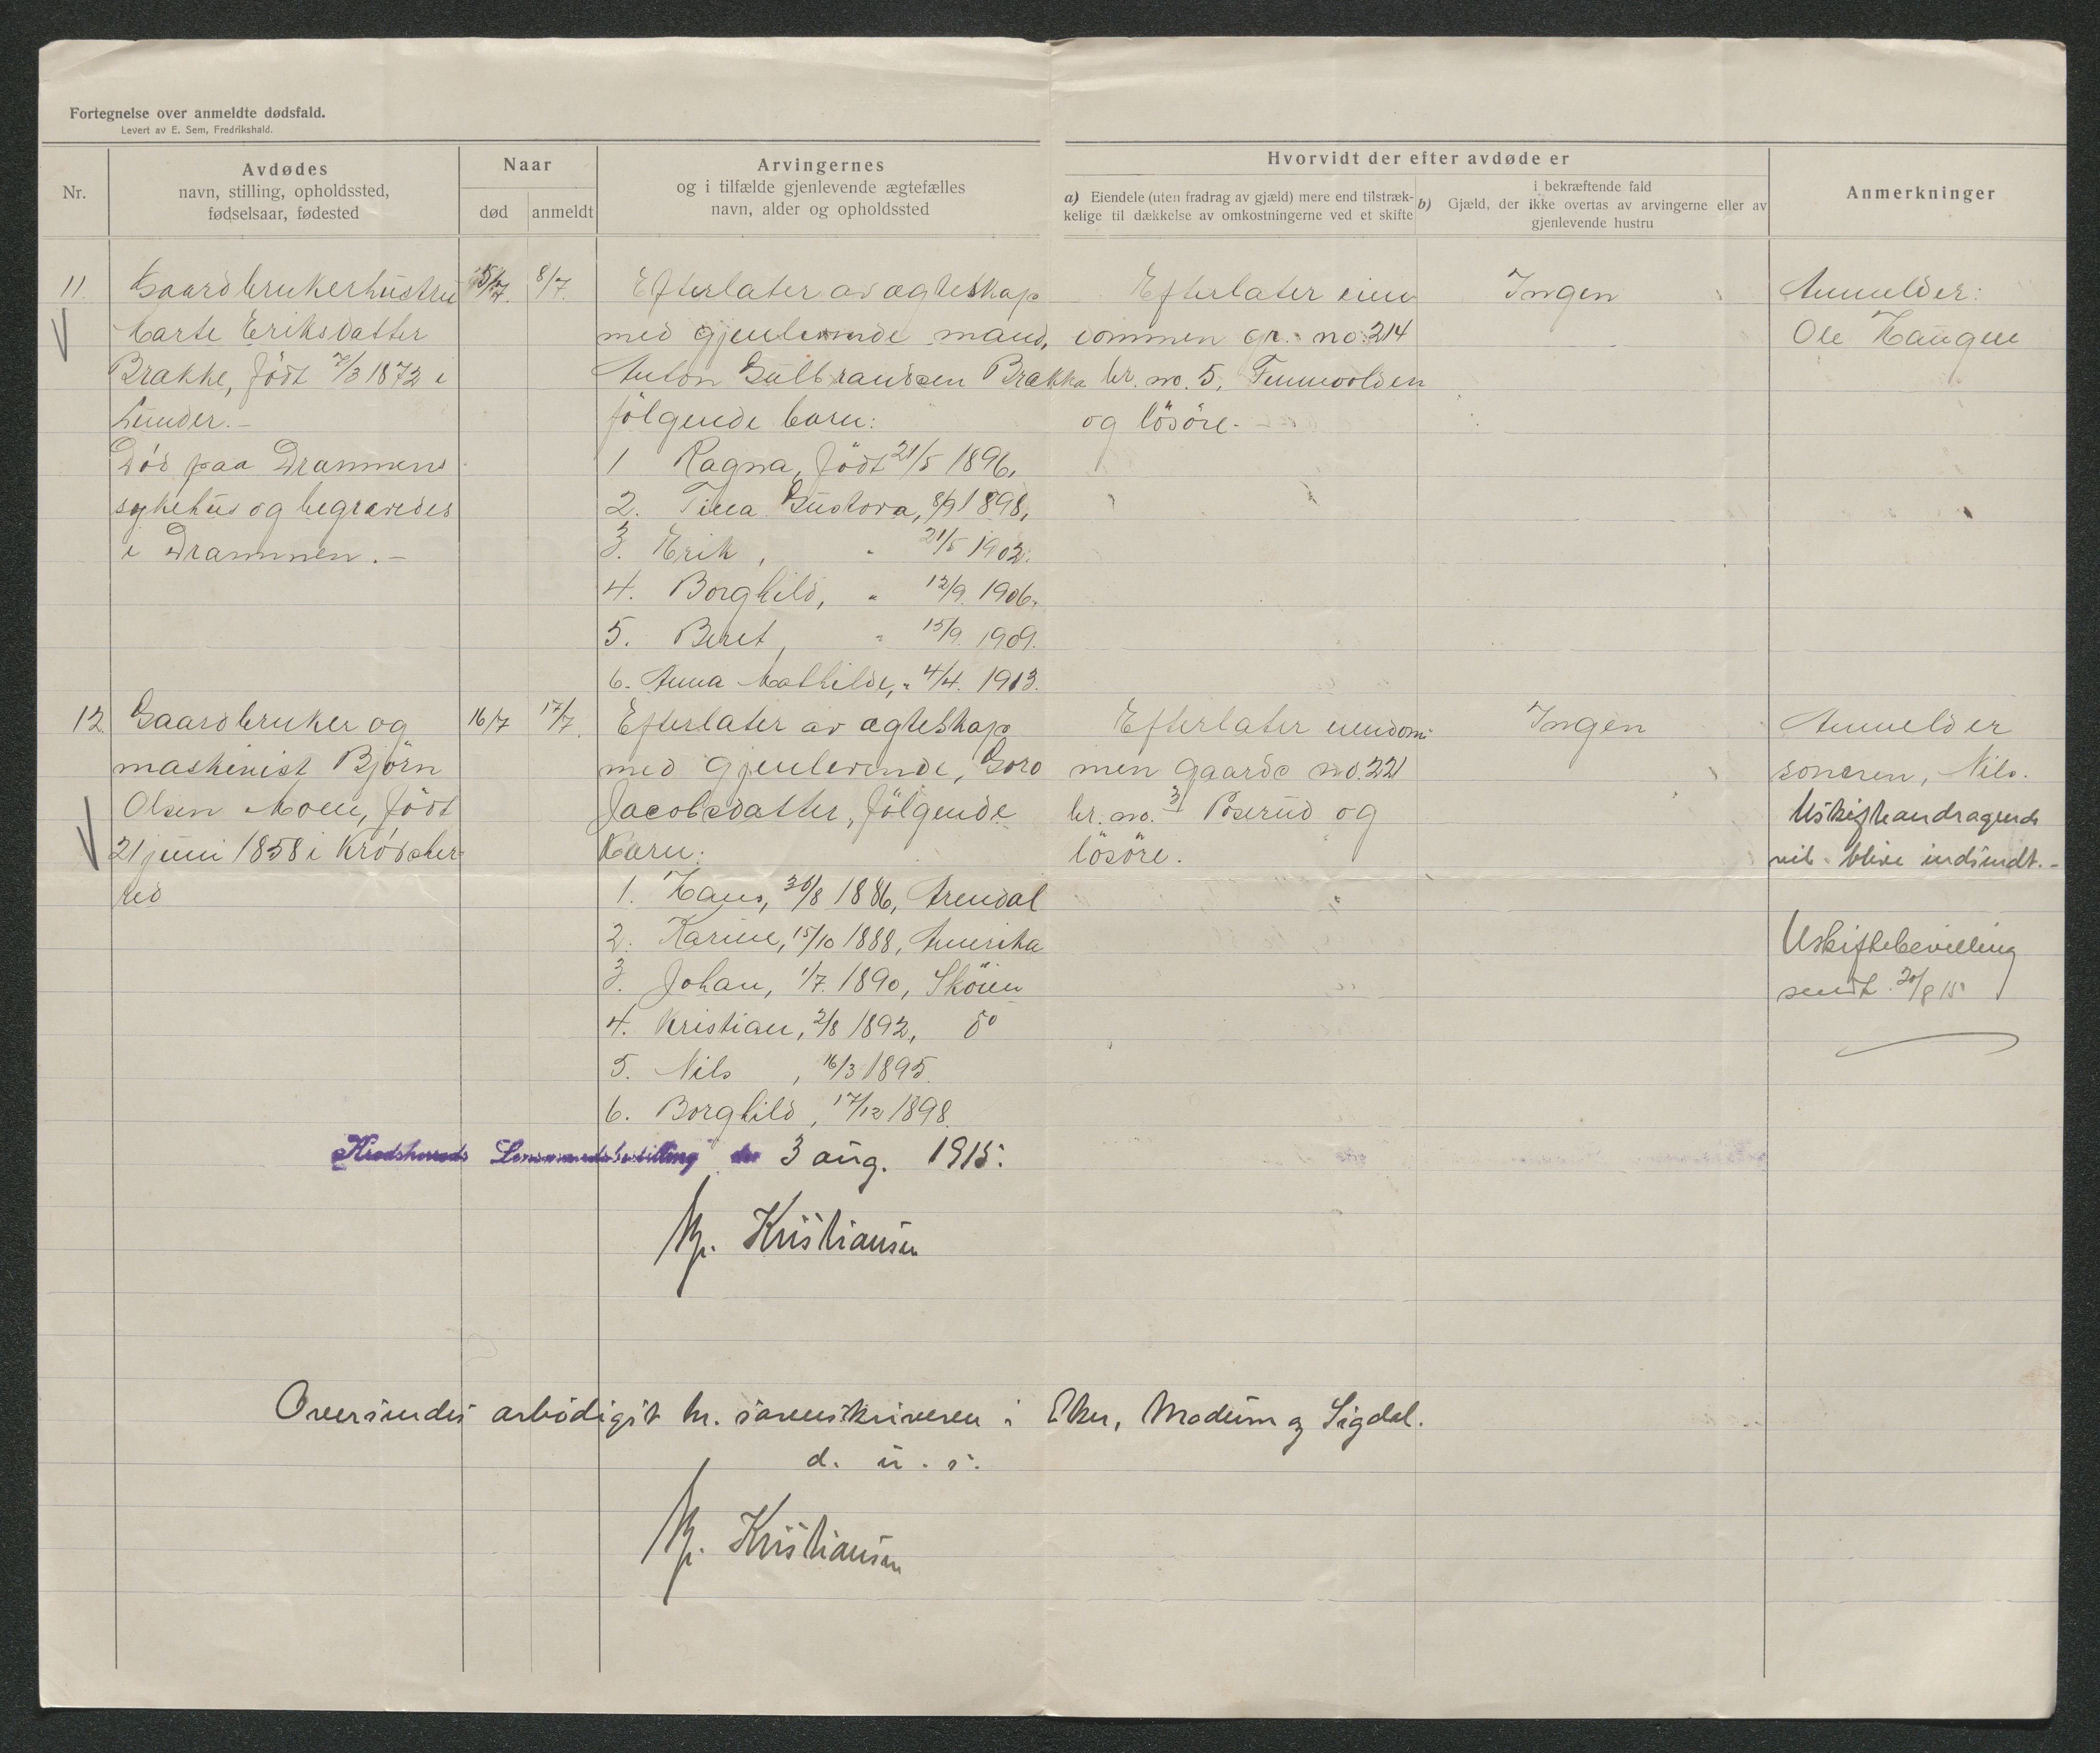 Fortegnelse over anmeldte dødsfald.
Levert av E. Sem, Fredrikshald.
Nr.
Avdødes
navn, stilling, opholdssted,
fødselsaar, fødested
Naar
død
anmeldt
Arvingernes
og i tilfælde gjenlevende ægtefælles
navn, alder og opholdssted
Hvorvidt der efter avdøde er
a) Eiendele (uten fradrag av gjæld) mere end tilstræk-
kelige til dækkelse av omkostningerne ved et skifte
i bekræftende fald
b) Gjæld, der ikke overtas av arvingerne eller av
gjenlevende hustru
Anmerkninger
11.
Gaardbrukerhustru
Marte Eriksdatter
Brakke, født 7/3 1872 i
Lunder.-
Død paa Drammens
sykehus og begravedes
i Drammen.-
5/7.
8/7.
Efterlater av ægteskap
med gjenlevende mand,
Anton Gulbrandsen Brakka
følgende barn:
1 Ragna, født 21/5 1896,
2. Tina Gustava, 8/9 1898,
3. Erik, " 21/5 1902.
4. Borghild, " 12/9. 1906.
5. Beret, " 15/9. 1909.
6. Anna Mathilde, " 4/4. 1913.
Efterlater eien
dommen gr. no. 214
br. no. 5,
og løsøre.-
Ingen
Anmelder:
Ole Haugen
12.
Gaardbruker og
maskinist Bjørn
Olsen Moen, født
21 juni 1858 i Krødsher-
red
16/7
17/7.
Efterlater av ægteskap
med gjenlevende, Goro
Jacobsdatter, følgende
Barn:
1. Hans, 30/8 1886, Arendal
2. Karine, 15/10 1888, Amerika
3. Johan, 1/7. 1890, Skøien
4. Kristian, 2/8 1892, do
5. Nils, 16/3 1895.
6. Borghild, 17/12 1898.
Efterlater eiendom-
men gaards no. 221
br. no. 3 Poserud og
løsøre.
Ingen
Anmelder
sønnen, Nils.
Uskifteandragende
vil blive indsendt.-
Uskiftebevilling
sendt 20/8 15
Krødsherreds Lensmandsbestilling den 3 aug. 1915.
Kr. Kristiansen
Oversendes ærbødigst hr. sorenskriveren i Eker, Modum og Sigdal.
d. u. s.
Kr. Kristiansen